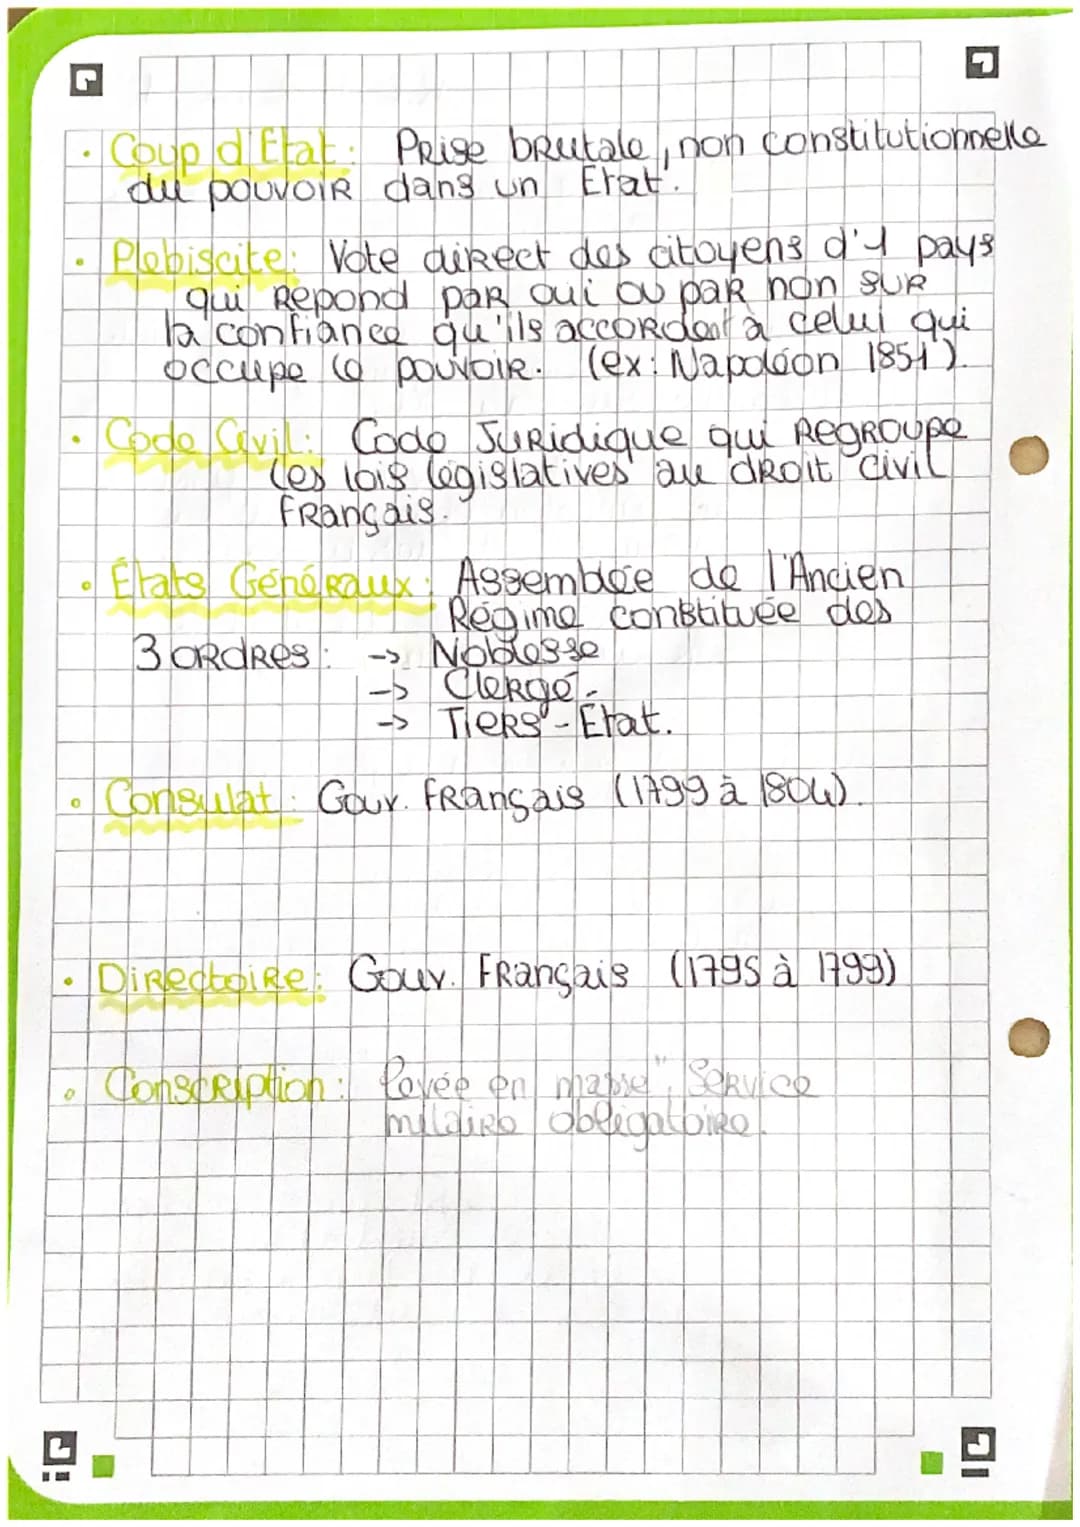 • Coup d'Etat : Prise brutale, non constitutionnelle
du pouvoir dans un Etat.
• Plebiscite : Vote direct des citoyens d'1 pays
qui repond par oui ou par non sur
la confiance qu'ils accordent à celui qui
occupe le pouvoir. (ex : Napoléon 1851).
• Code Civil : Code Juridique qui regroupe
les lois législatives au droit civil
Français.
• États Généraux : Assemblée de l'Ancien
Régime constituée des
3 ordres : -> Noblesse
-> Clergé.
-> Tiers-Etat.
• Consulat : Gouv. Français (1799 à 1804).
• Directoire : Gouv. Français (1795 à 1799)
• Conscription : levée en masse", Service
militaire obligatoire.